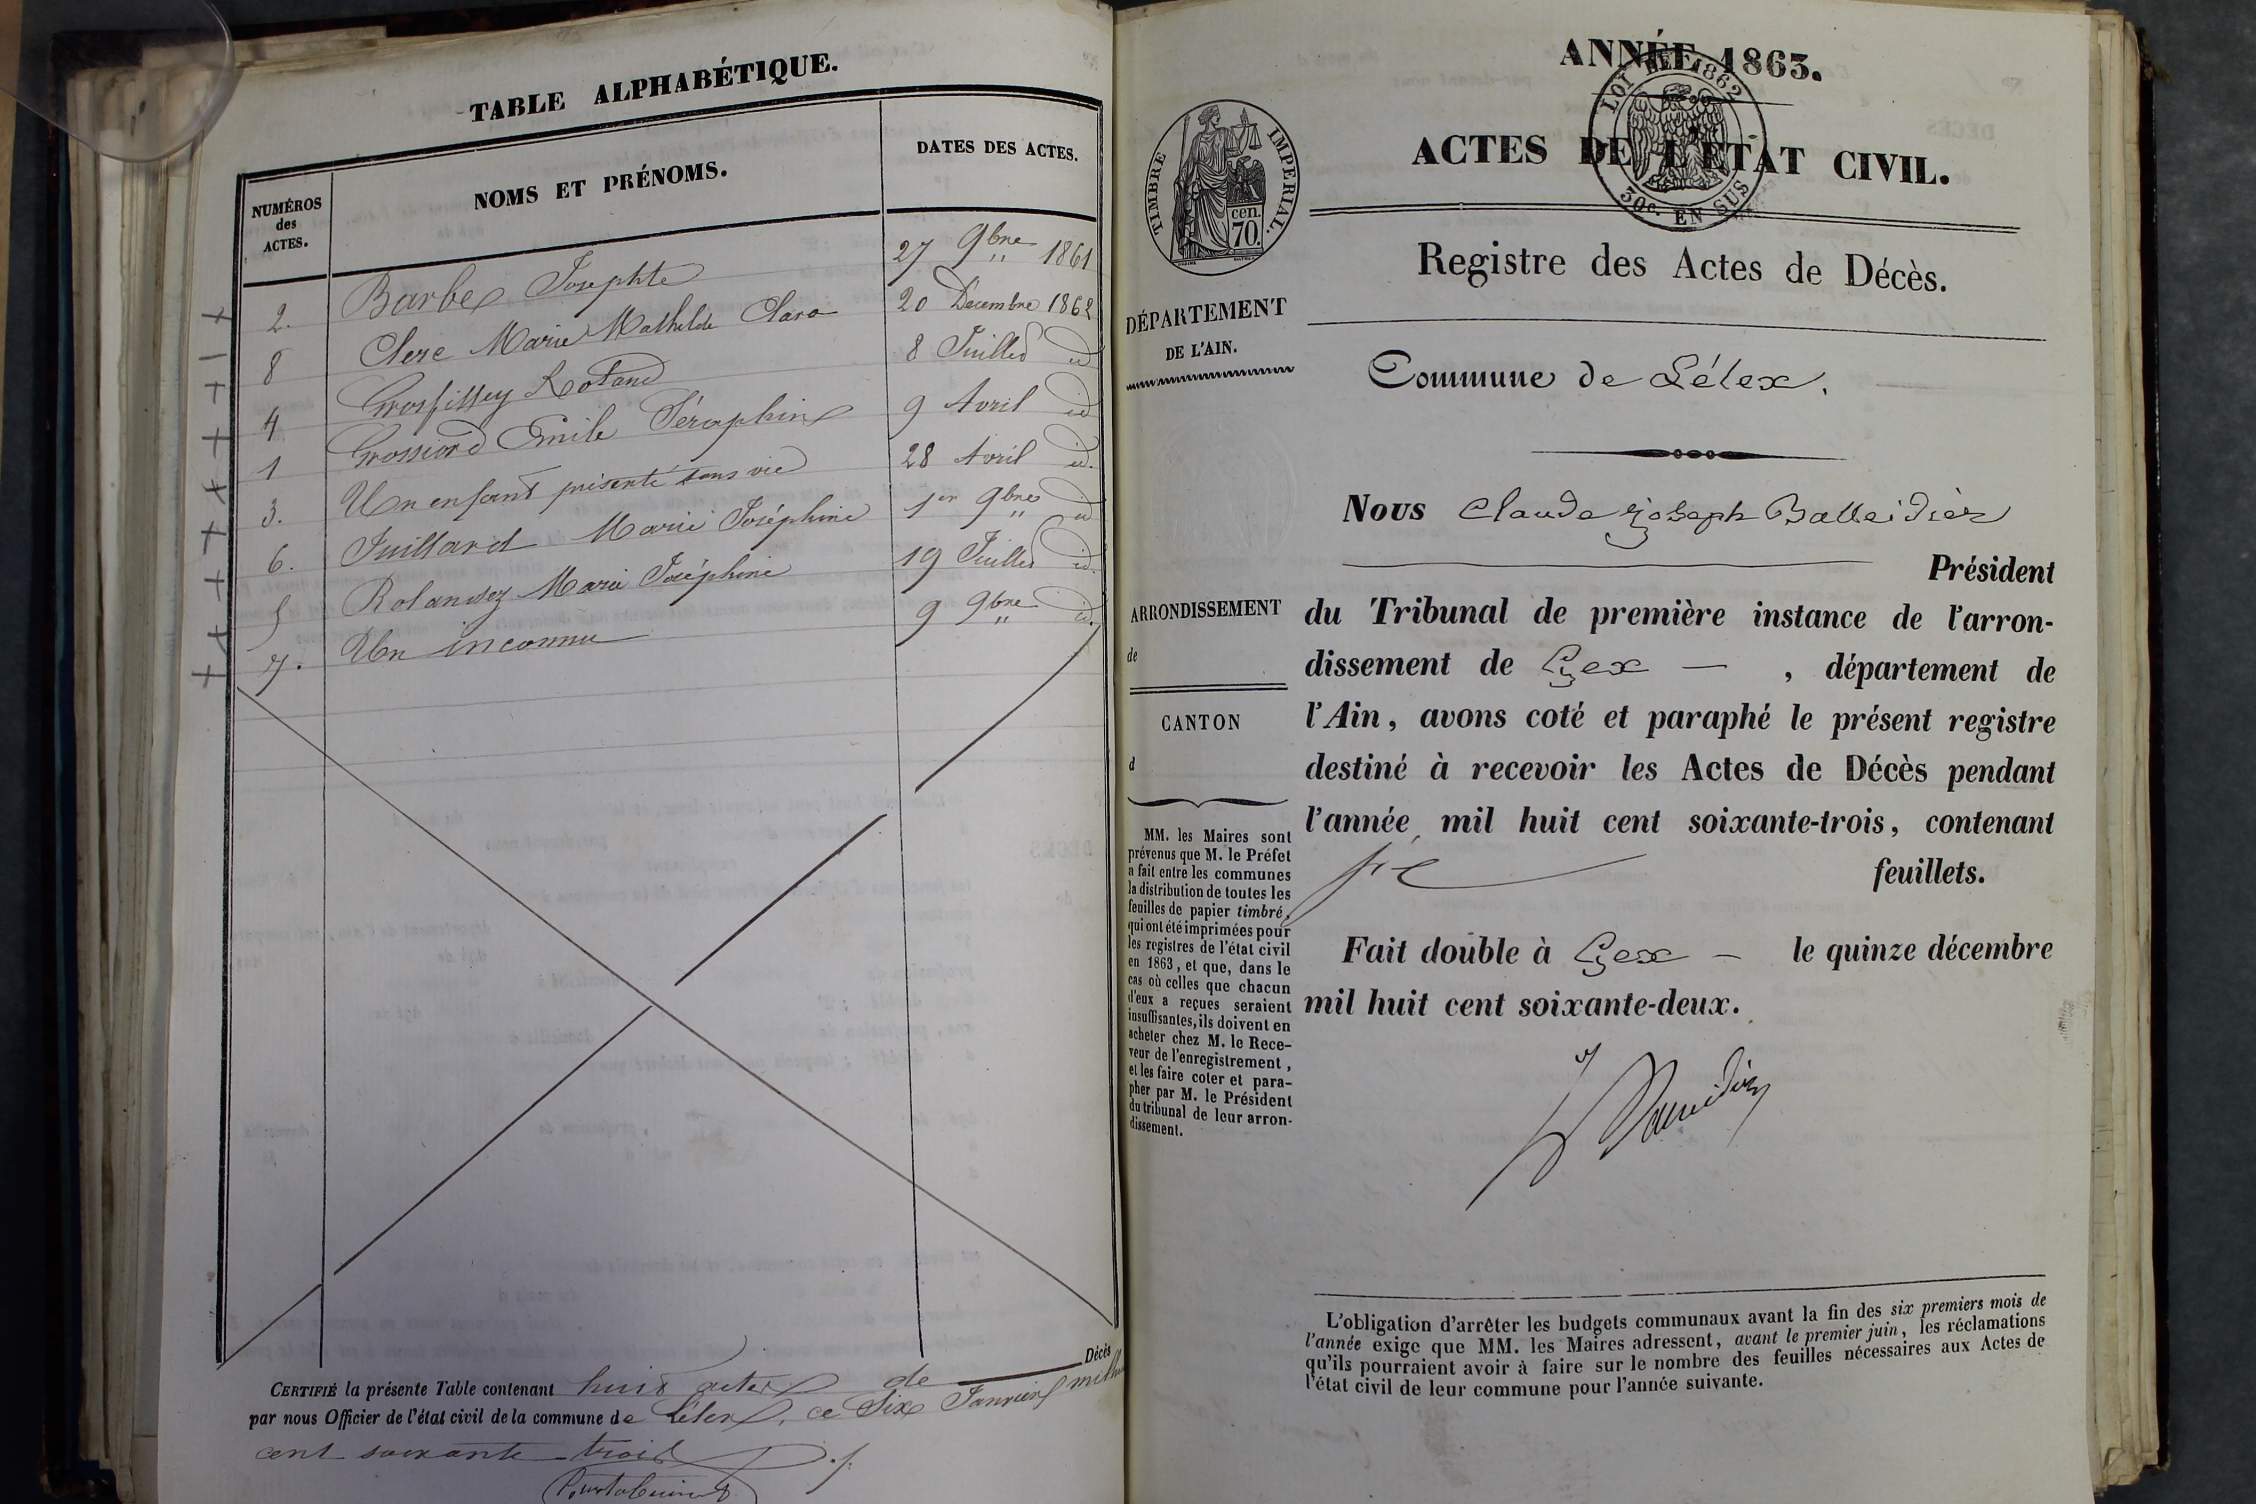 TABLE ALPHABÉTIQUE.
NUMÉROS des ACTES. NOMS ET PRÉNOMS. DATES DES ACTES.
2. Barbe Josephte 27 9bre 1861
8 Clerc Marie Mathilde Clara 20 Décembre 1862
4 Grosfilley Roland 8 Juillet id
1 Grossiord Emile Séraphin 9 Avril id
3. Un enfant présenté sans vie 28 Avril id.
6. Juillard Marie Joséphine 1er 9bre id
5 Rolandez Marie Joséphine 19 Juillet id.
7. Un inconnu 9 9bre id.
CERTIFIÉ la présente Table contenant huit actes de Décès
par nous Officier de l'état civil de la commune de Lélex, ce Six Janvier mil huit
cent soixante-trois
ANNÉE 1863.
LOI DE 1862
30c. EN SUS
TIMBRE IMPÉRIAL.
cen. 70.
ACTES DE L'ÉTAT CIVIL.
Registre des Actes de Décès.
DÉPARTEMENT
DE L'AIN.
Commune de Lélex.
ARRONDISSEMENT
de
CANTON
d
MM. les Maires sont
prévenus que M. le Préfet
a fait entre les communes
la distribution de toutes les
feuilles de papier timbré,
qui ont été imprimées pour
les registres de l'état civil
en 1863, et que, dans le
cas où celles que chacun
d'eux a reçues seraient
insuffisantes, ils doivent en
acheter chez M. le Rece-
veur de l'enregistrement,
et les faire coter et para-
pher par M. le Président
du tribunal de leur arron-
dissement.
Nous Claude Joseph Balleidier
Président
du Tribunal de première instance de l'arron-
dissement de Gex — , département de
l'Ain, avons coté et paraphé le présent registre
destiné à recevoir les Actes de Décès pendant
l'année mil huit cent soixante-trois, contenant
six feuillets.
Fait double à Gex — le quinze décembre
mil huit cent soixante-deux.
L'obligation d'arrêter les budgets communaux avant la fin des six premiers mois de
l'année exige que MM. les Maires adressent, avant le premier juin, les réclamations
qu'ils pourraient avoir à faire sur le nombre des feuilles nécessaires aux Actes de
l'état civil de leur commune pour l'année suivante.